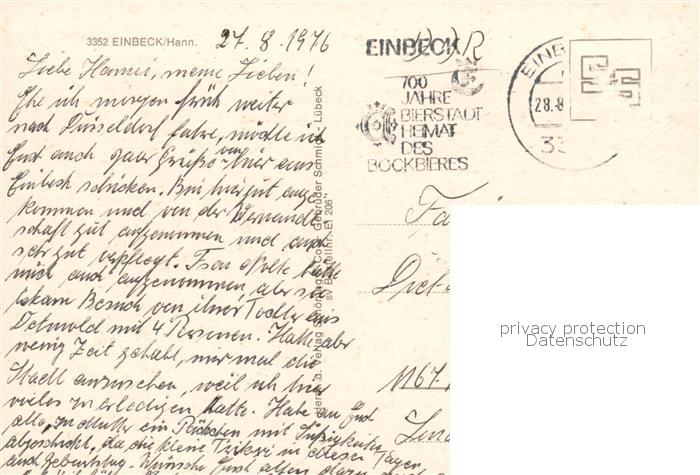 3352 EINBECK/Hann. 27.8.1976
Liebe Hanni, meine Lieben!
Ehe ich morgen früh weiter
nach Düsseldorf fahre, möchte ich
Euch auch paar Grüße von hier aus
Einbeck schicken. Bin hier gut ange
kommen und von der Verwandt
schaft gut aufgenommen und auch
sehr gut verpflegt. Frau Nolte hatte
mich auch aufgenommen, aber sie
bekam Besuch von ihrer Tochter aus
Detmold mit 4 Personen. Hatte aber
wenig Zeit gehabt, nur mal die
Stadt anzusehen, weil ich hier
vieles zu erledigen hatte. Habe an Euch
alle, zu Mutter ein Päckchen mit Süßigkeiten
abgeschickt, da die kleine in diesen Tagen
auch Geburtstag. Wünsche Euch allen
Gebrüder Schmidt - Lübeck
EINBECK
DDR
700
JAHRE
BIERSTADT
HEIMAT
DES
BOCKBIERES
EINB
28.8
33
Fa
Diet
1167
privacy protection
Datenschutz